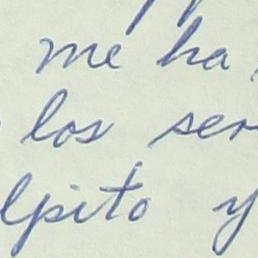 me ha
los ser
lpito y